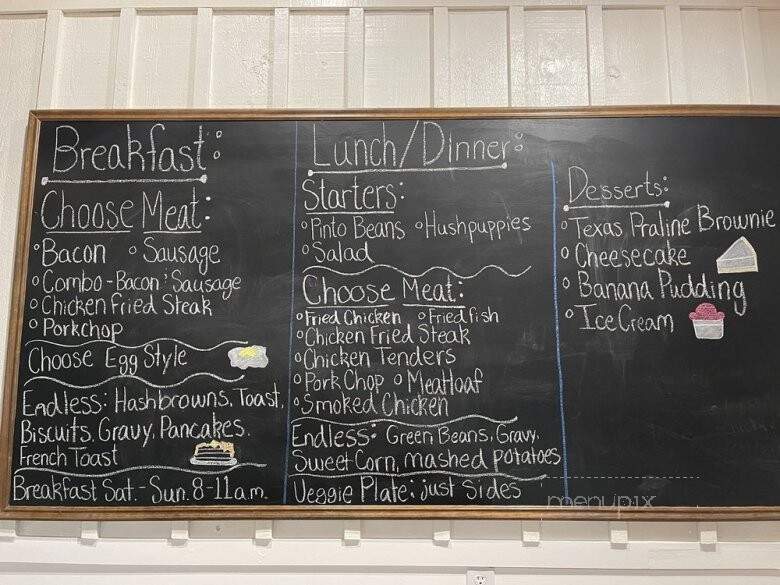 Breakfast:
Choose Meat:
° Bacon ° Sausage
° Combo - Bacon & Sausage
° Chicken Fried Steak
° Porkchop
Choose Egg Style
Endless: Hashbrowns, Toast,
Biscuits, Gravy, Pancakes,
French Toast
Breakfast Sat.-Sun. 8-11am.
Lunch/Dinner:
Starters:
° Pinto Beans ° Hushpuppies
° Salad
Choose Meat:
° Fried Chicken ° Fried fish
° Chicken Fried Steak
° Chicken Tenders
° Pork Chop ° Meatloaf
° Smoked Chicken
Endless: Green Beans, Gravy,
Sweet Corn, mashed potatoes
Veggie Plate: just sides
Desserts:
° Texas Praline Brownie
° Cheesecake
° Banana Pudding
° Ice Cream
menupix